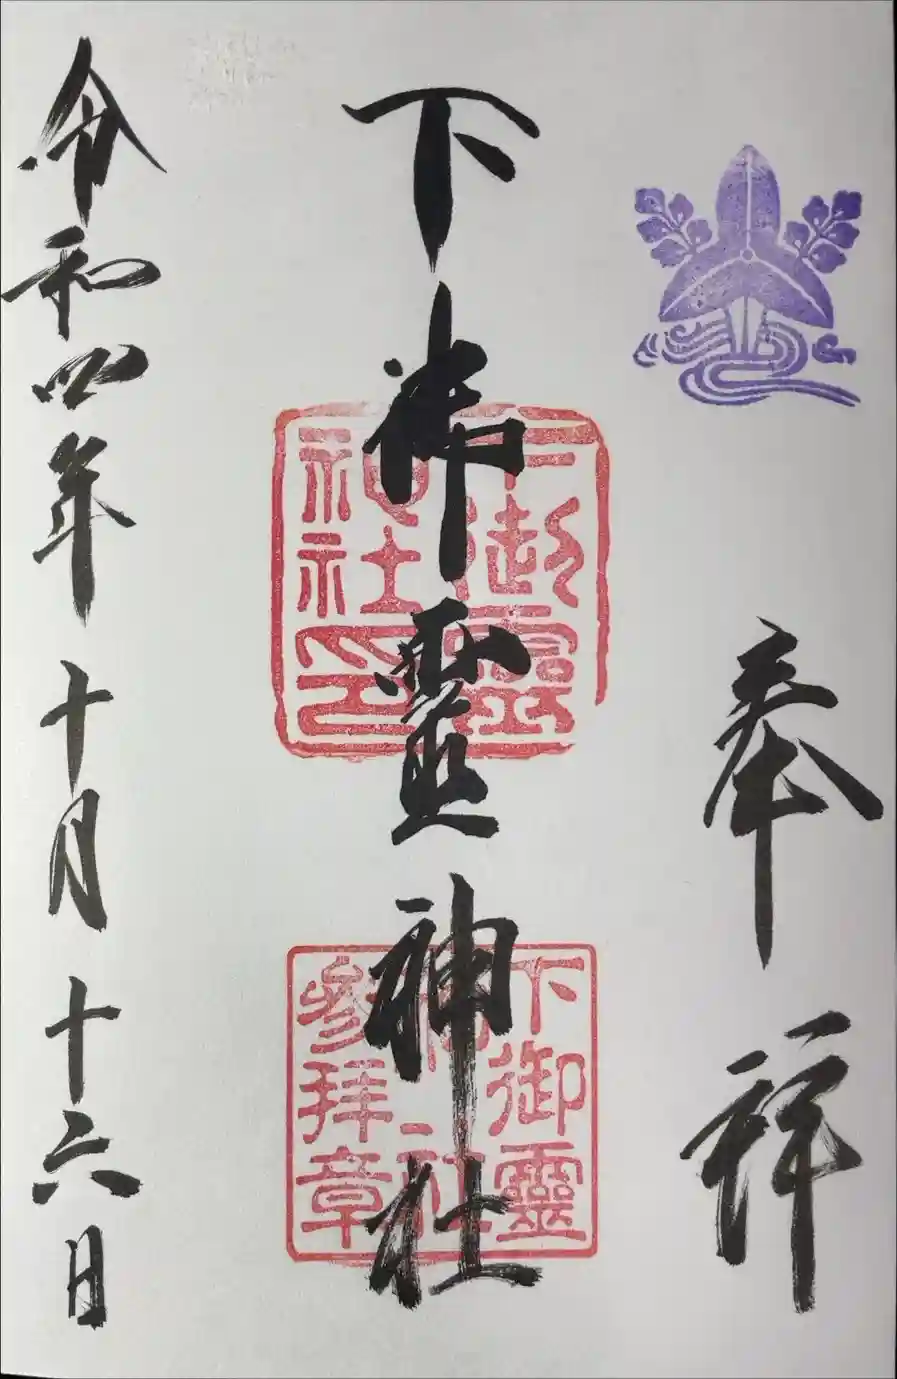 奉拝
下御靈神社
下御靈神社印
下御靈神社参拝章
令和四年十月十六日